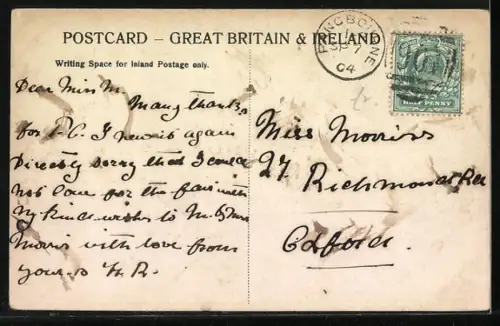 POSTCARD – GREAT BRITAIN & IRELAND
Writing Space for Inland Postage only.
PANGBOURNE
SP 7
04
HALF PENNY
Dear Miss M.
Many thanks
for P.C. I
again
Directly sorry that I could
not come for the
with
my kind wishes to Mr & Mrs
Morris with love from
yours
Miss Morris
27
Richmond Rd
Oxford.